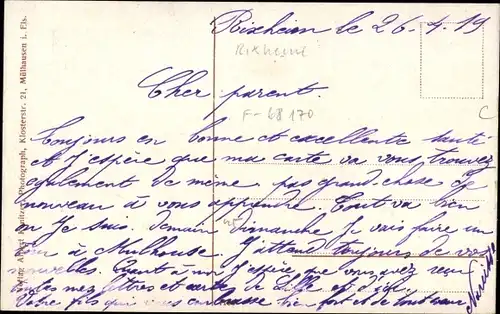 Rixheim le 26.4.19
Rixheim
Cher parent.
F-68170
Toujours en bonne et excellente santé
et J'espère que ma carte va vous trouvez
également de même. pas grand chose de
nouveau à vous apprendre. Tout va bien
où Je suis. demain Dimanche Je vais faire un
tour à Mulhouse. J'attend toujours de vos
nouvelles. Quant à moi J'espère que vous avez reçu
toutes mes lettres et cartes de Lille et d'ici.
Votre fils qui vous embrasse bien fort et de tout cœur
Narcisse
Photograph, Klosterstr. 21, Mülhausen i. Els.